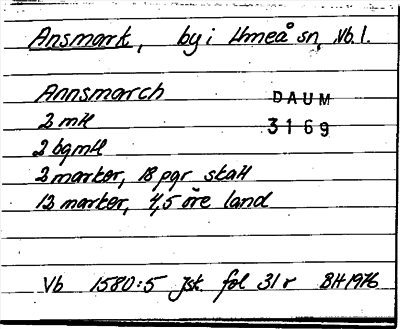 Ansmark, by i Umeå sn, Vb. l.
Annsmarch
DAUM
3169
2 mtl
2 bgmtl
2 marker, 18 pgr skatt
12 marker, 4,5 öre land
Vb 1580:5 Jsk. fol 31 r BH 1976